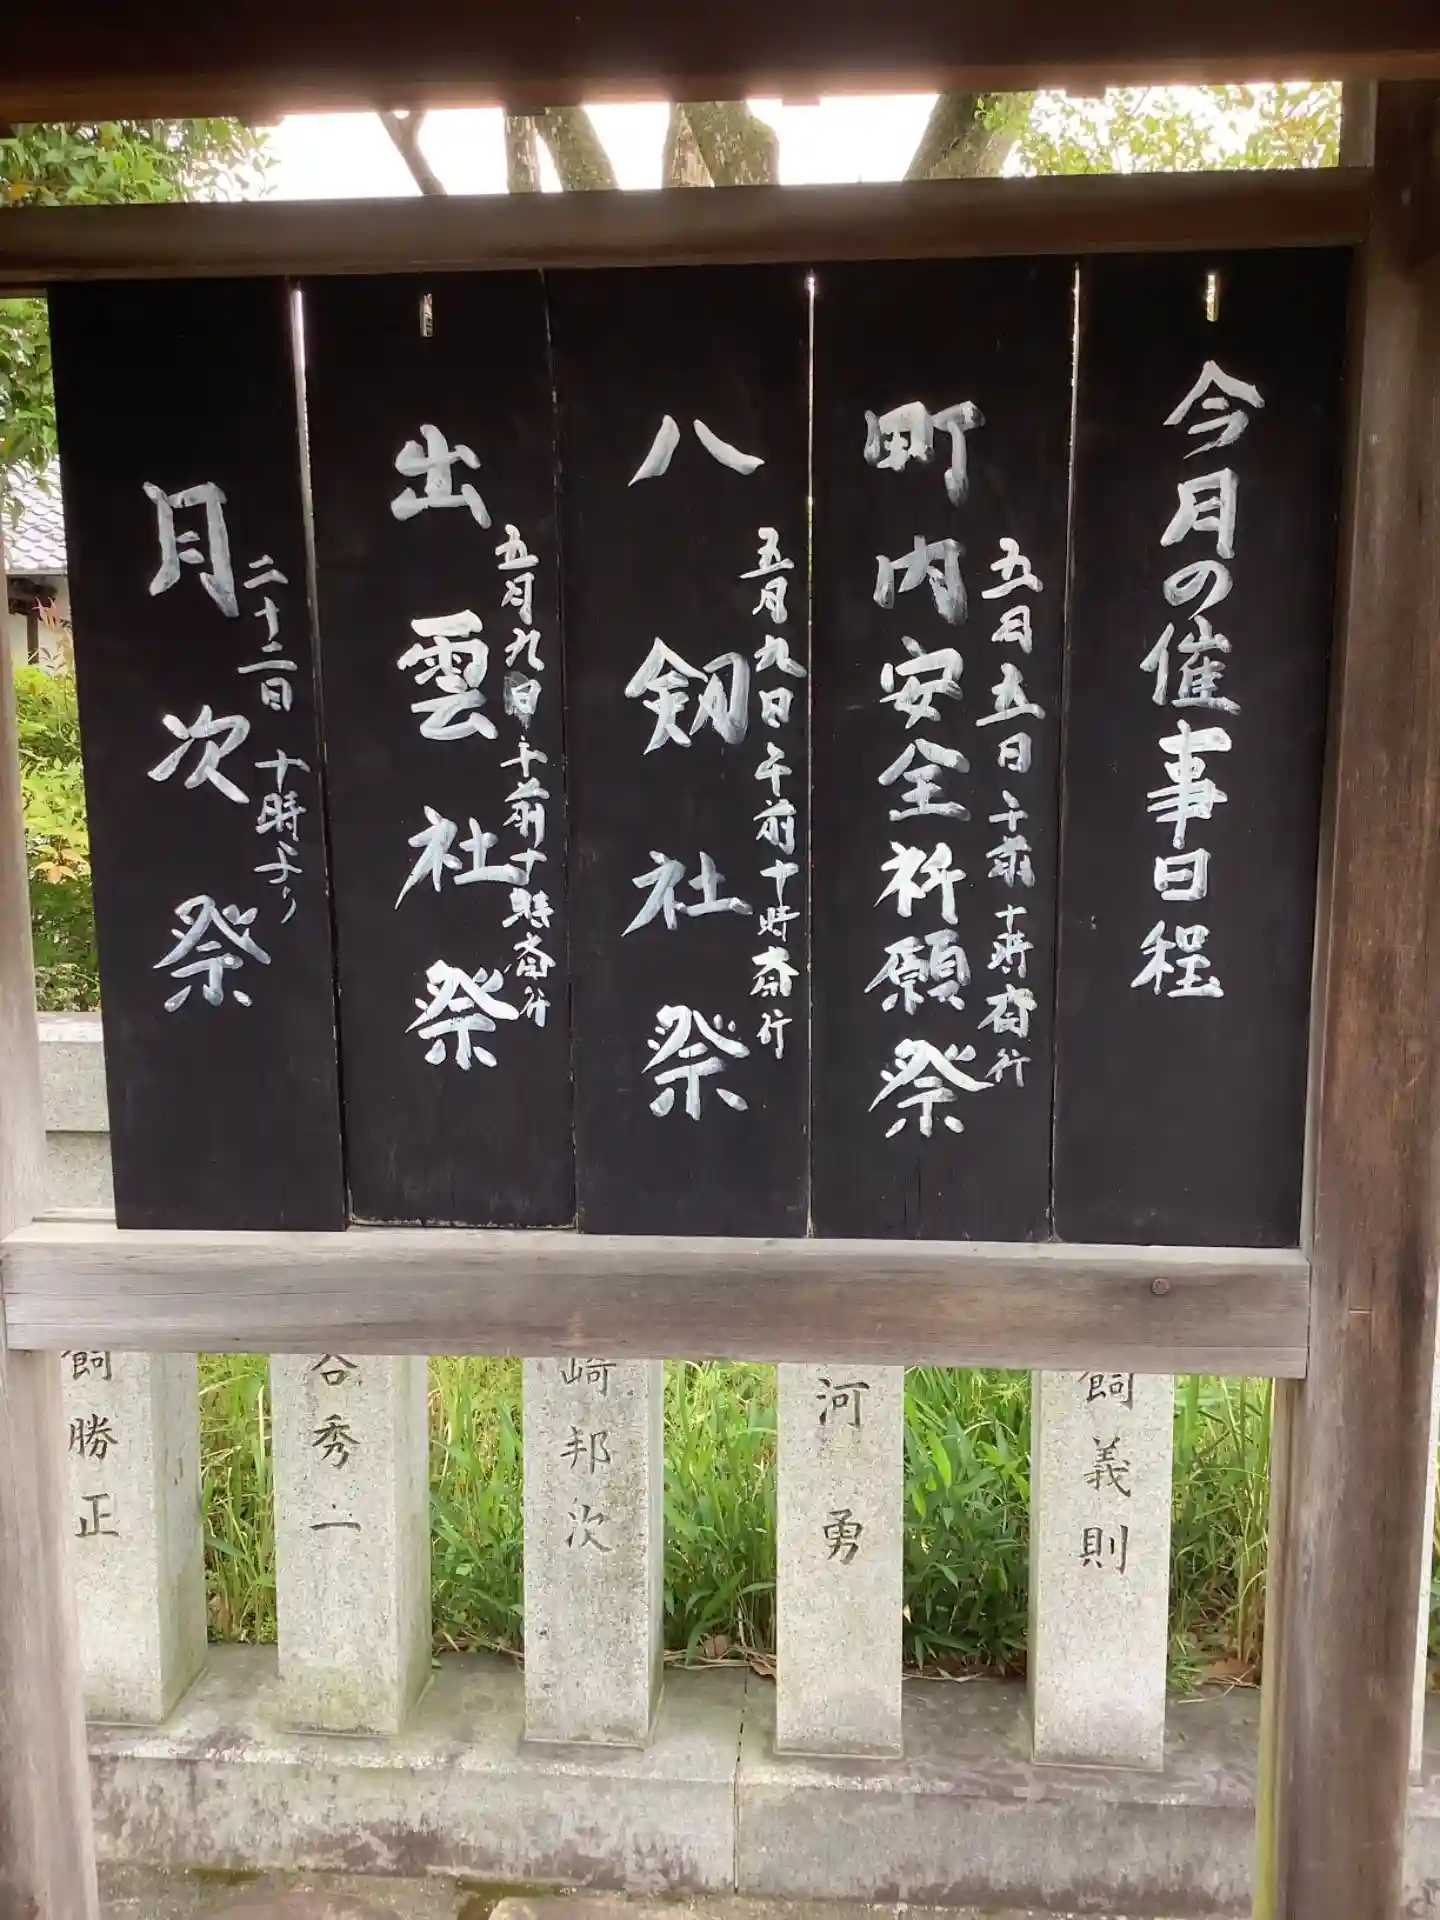 今月の催事日程
五月五日 午前十時斎行
町内安全祈願祭
五月九日午前十時斎行
八剱社祭
五月九日午前十時斎行
出雲社祭
二十二日 十時より
月次祭
飼義則
河勇
崎邦次
谷秀一
飼勝正